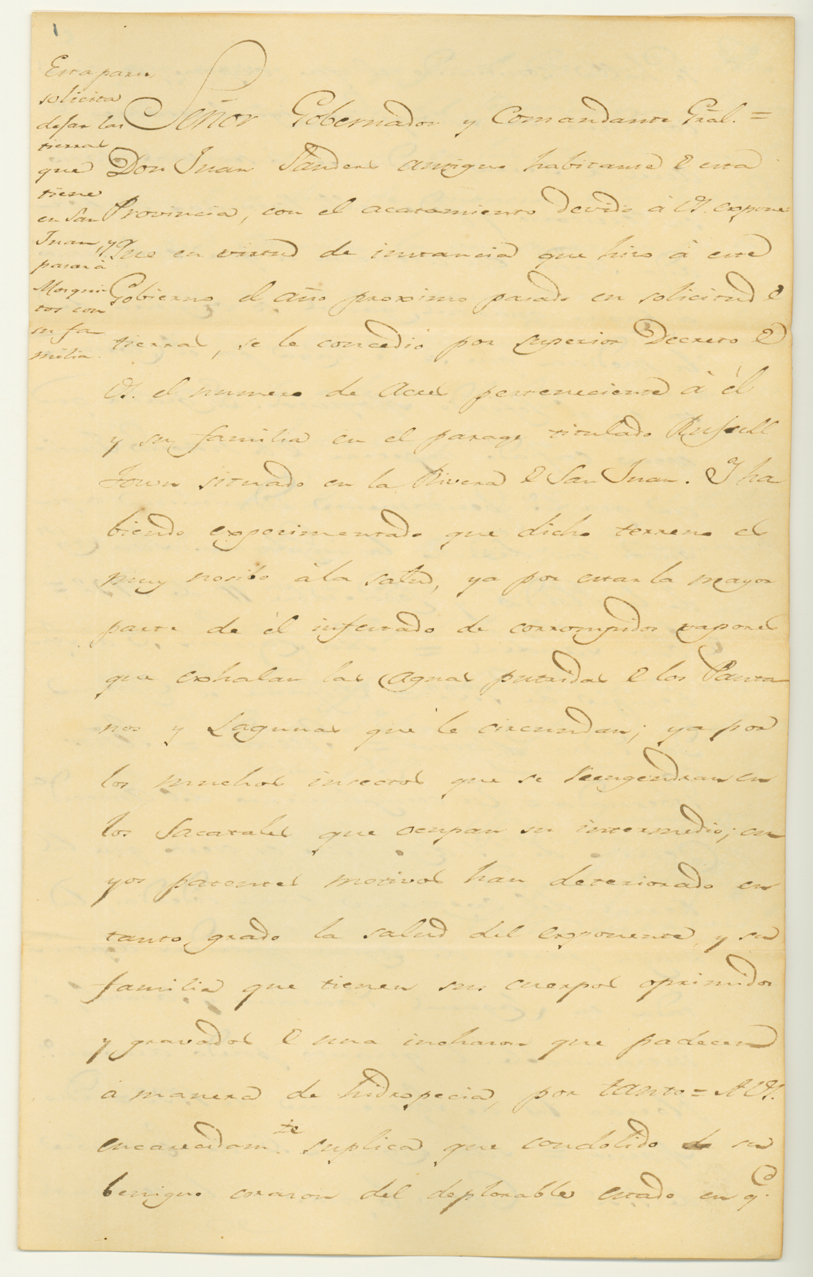 1
Esta para
solicita
dejar las
tierras
que
tiene
en San
Juan, y
pasar á
Mosqui-
tos con
su fa-
milia
Señor Gobernador y Comandante Gral. =
Don Juan Sanders antiguo habitante de esta
Provincia, con el acatamiento devido á V.S. expone
Que en virtud de instancia que hiso á este
Gobierno el año proximo pasado en solicitud de
tierras, se le concedió por superior Decreto de
V.S. el numero de Acres perteneciente á él
y su familia en el parage titulado Russell
Town situado en la Rivera de San Juan. Y ha
biendo experimentado que dicho terreno es
muy nosibo á la salud, ya por estar la mayor
parte de él infectado de corrompidos vapores
que exhalan las Aguas putridas de los Panta
nos y Lagunas que le circundan; ya por
los muchos insectos que se engendran en
los Sacatales que ocupan su intermedio; cu
yos patentes motivos han deteriorado en
tanto grado la salud del exponente, y su
familia que tienen sus cuerpos oprimidos
y gravados de una inchason que padecen
á manera de hidropecia, por tanto = A V.S.
encarecidamte suplica que condolido de su
benigno corason del deplorable estado en q.